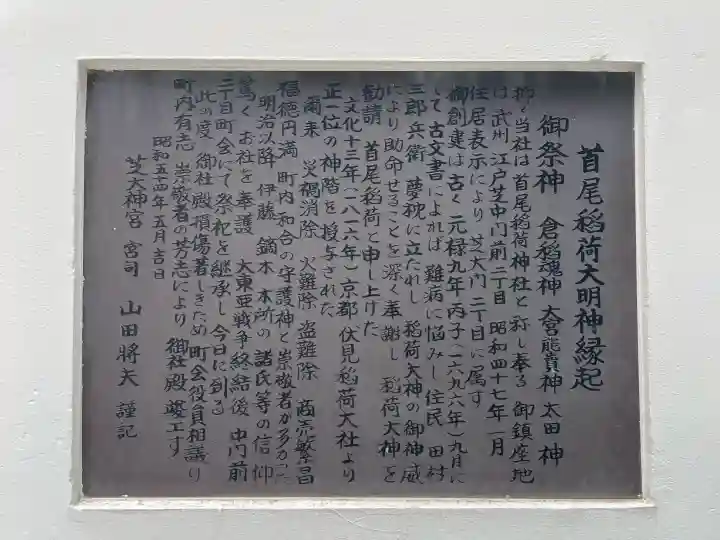 首尾稲荷大明神縁起
御祭神 倉稲魂神 大宮能賣神 太田神
抑〻当社は首尾稲荷神社と称し奉る 御鎮座地
は 武州 江戸芝中門前二丁目 昭和四十七年一月
住居表示により 芝大門二丁目に属す
御創建は古く 元禄九年丙子(一六九六年)九月に
して 古文書によれば 難病に悩みし住民 田村
三郎兵衛 夢枕に立たれし 稲荷大神の御神威
により助命せることを深く奉謝し 稲荷大神を
勧請 首尾稲荷と申し上げた
文化十三年(一八一六年)京都 伏見稲荷大社より
正一位の神階を授与された
爾来 災禍消除 火難除 盗難除 商売繁昌
福徳円満 町内和合の守護神と崇敬者が多かった
明治以降 伊藤 鏑木 本所の諸氏等の信仰
篤く お社を奉護 大東亜戦争終結後 中門前
二丁目町会にて 祭祀を継承し 今日に到る
此の度 御社殿損傷著しきため 町会役員相議り
町内有志 崇敬者の芳志により 御社殿 竣工す
昭和五十四年五月吉日
芝大神宮 宮司 山田將夫 謹記